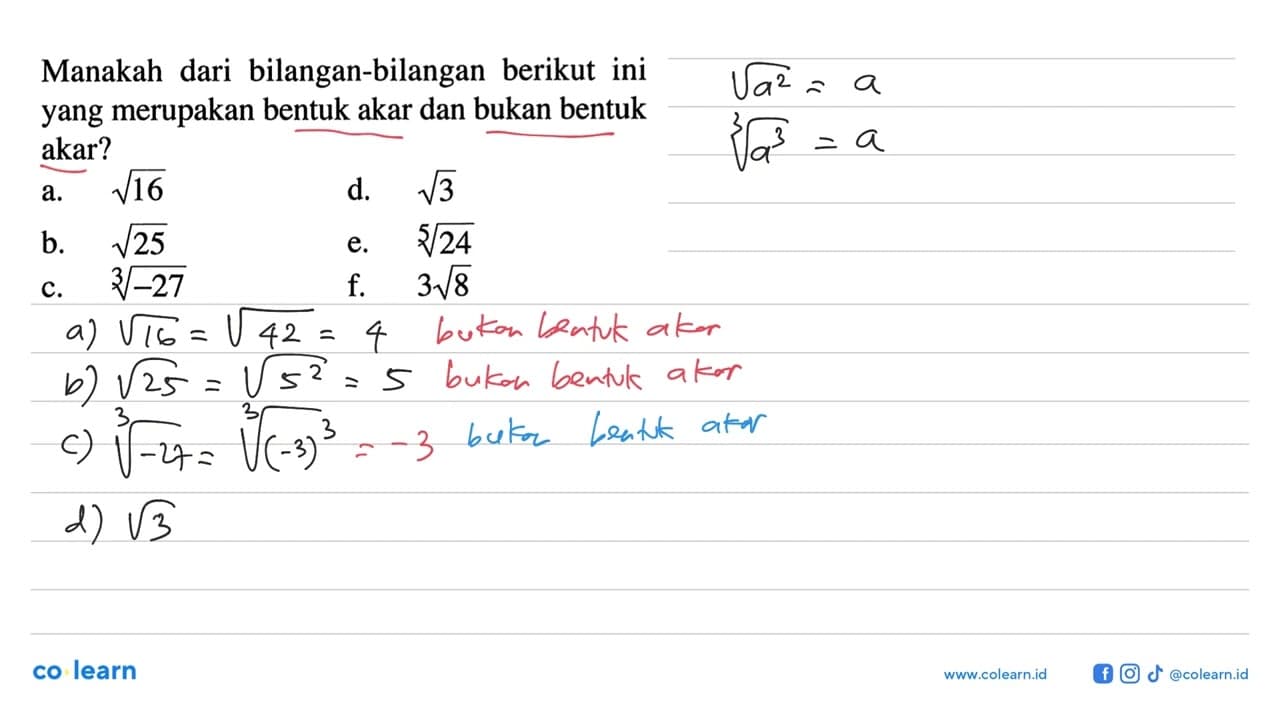 Manakah dari bilangan-bilangan berikut ini
yang merupakan bentuk akar dan bukan bentuk
akar?
a. √16 d. √3
b. √25 e. ⁵√24
c. ³√-27 f. 3√8
√a² = a
³√a³ = a
a) √16 = √42 = 4 bukan bentuk akar
b) √25 = √5² = 5 bukan bentuk akar
c) ³√-27 = ³√(-3)³ = -3 bukan bentuk akar
d) √3
co learn
www.colearn.id @colearn.id